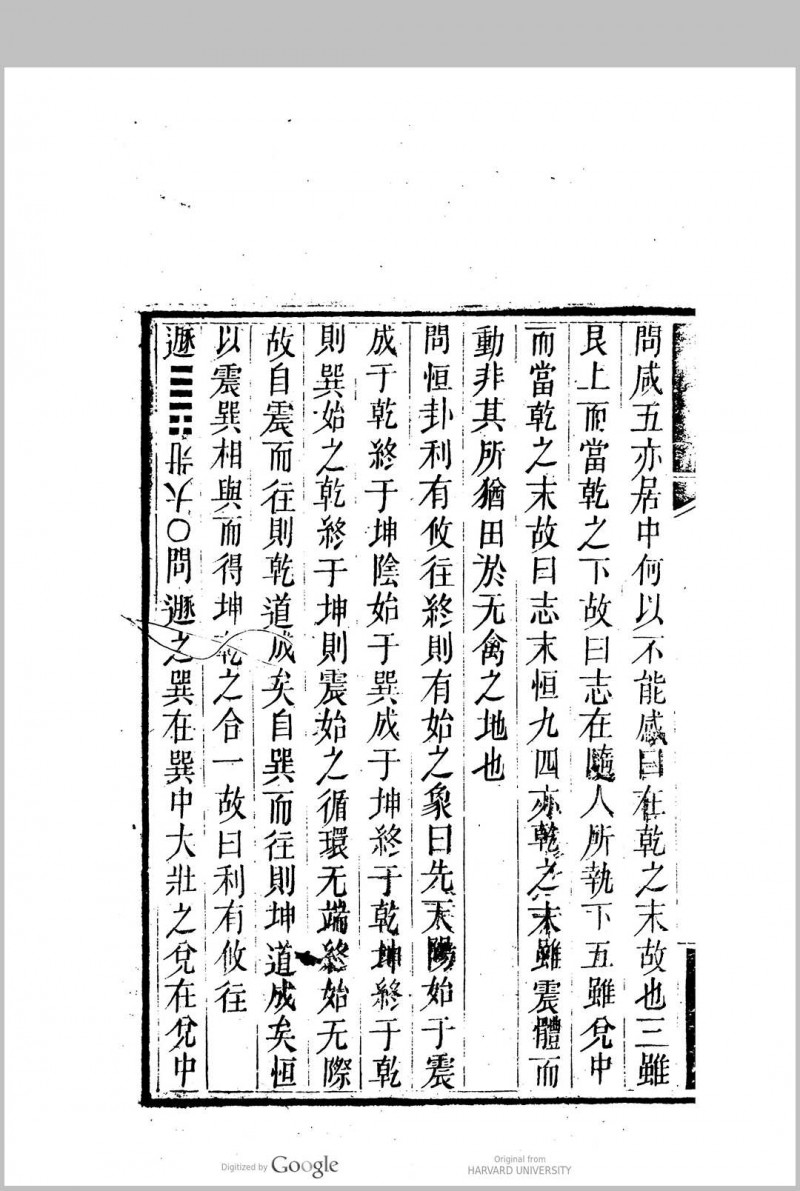 問咸五亦居中何以不能感曰在乾之末故也三雖
艮上而當乾之下故曰志在隨人所執下五雖兌中
而當乾之末故曰志末恒九四亦乾之末雖震體而
動非其所猶田於无禽之地也
問恒卦利有攸往終則有始之象曰先天陽始于震
成于乾終于坤陰始于巽成于坤終于乾坤終于乾
則巽始之乾終于坤則震始之循環无端終始无際
故自震而往則乾道成矣自巽而往則坤道成矣恒
以震巽相與而得坤乾之合一故曰利有攸往
遯䷠大壯○問遯之巽在巽中大壯之兌在兌中
Digitized by Google
Original from
HARVARD UNIVERSITY